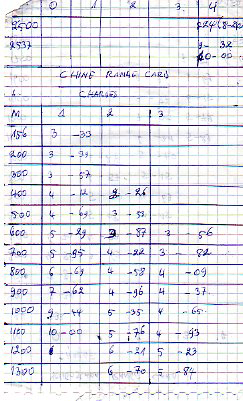 0 1 2 3 4
2500
2537 9- 32
10-00
CHINE RANGE CARD
CHARGES
M 1 2 3
156 3 -33
200 3 -39
300 3 -57
400 4 -12 2 -26
500 4 -69 3 -53
600 5 -29 3 -87 3 - 56
700 5 -95 4 -22 3 - 82
800 6 -69 4 -58 4 -09
900 7 -62 4 -96 4 -37
1000 9 -44 5 -35 4 -65
1100 10 -00 5 -76 4 -93
1200 6 -21 5 -23
1300 6 -70 5 -84